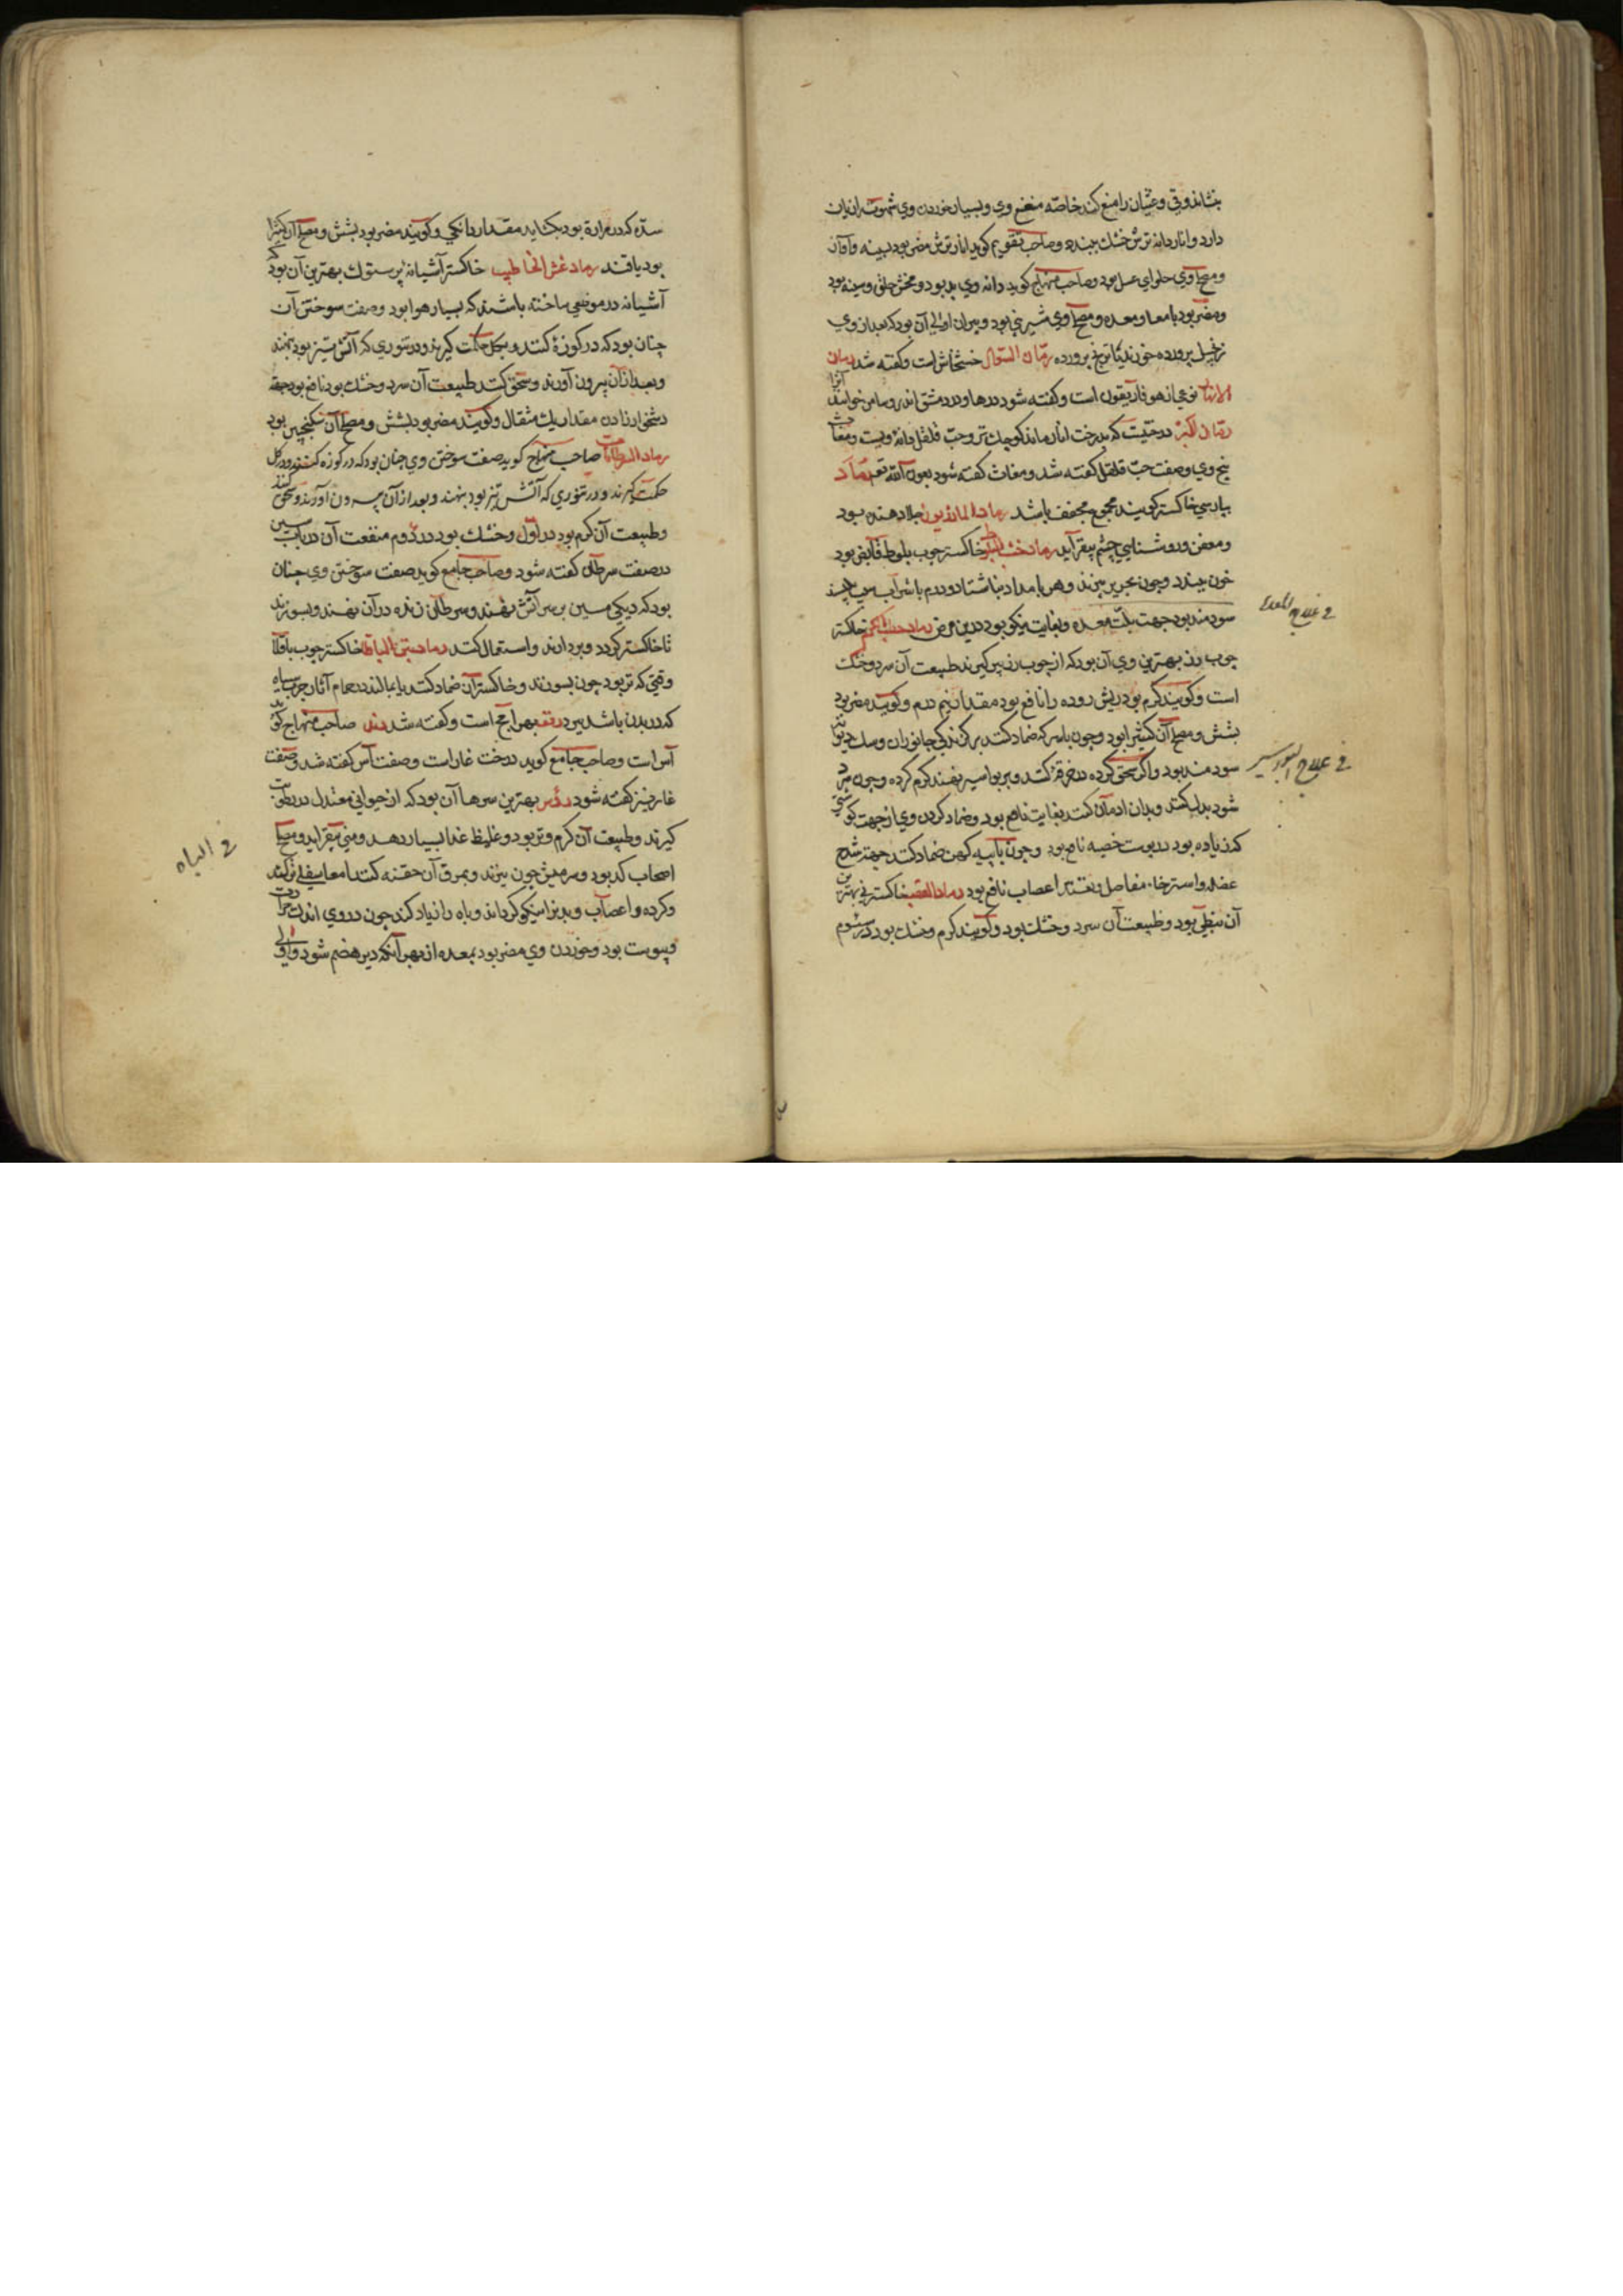 بنشاند و قی و غثیان را منع کند خاصه منعنع وی و بسیار خوردن وی شهوت را زیان
دارد و انار دانه ترش خشک ببندد و صاحب تقویم گوید انار ترش مضر بود بسینه و آواز
و مصلح وی حلوای عسل بود و صاحب منهاج گوید دانه وی بد بود و مخشن حلق و سینه بود
و مضر بود بامعا و معده و مصلح وی شیرینی بود و بیران اولی آن بود که بعد از وی
زنجبیل پرورده خورند یا ترنج پرورده رمان السوال خشخاش است و گفته شد رمان
الانهار نوعی از هوفاریقون است و گفته شود در ها و در دمشق اندروسامن خوانند آنرا
رمان البر درختیست که بدرخت انار ماند کوچک تر و حب قلقل دانه ویست و مغاث
بیخ وی و صفت حب قلقل گفته شد و مغاث گفته شود بعون الله تع رماد
بپارسی خاکستر گویند مجموع مجفف باشد رماد المازریون جلا دهنده بود
و معفن و روشنایی چشم بیفزاید رماد خشب البلوط خاکستر چوب بلوط قابض بود
خون ببندد و چون بحریر بیزند و هر بامداد بناشتا دو درم با شراب سیب بیاشامند
سودمند بود جهت بلّت معده و بغایت نیکو بود درین مرض رماد حطب الکرم خاکستر
فی علاج المعدة
چوب رز بهترین وی آن بود که از چوب رز پیر گیرند طبیعت آن سرد و خشک
است و گویند گرم بود ریش روده را نافع بود مقدار نیم درم و گویند مضر بود
بشش و مصلح آن کثیرا بود و چون با سرکه ضماد کنند بر گزندگی جانوران و سگ دیوانه
سودمند بود و اگر سحق کرده در خرقه کنند و بر بواسیر نهند گرم کرده و چون سرد
فی علاج البواسیر
شود بدل کنند و بدان ادمان کنند بغایت نافع بود و ضماد کردن وی از جهت گوشتی
که زیاده بود در پوست خصیه نافع بود و چون با پیه کهن ضماد کنند جهت شدخ
عضله و استرخاء مفاصل و تعقد اعصاب نافع بود رماد القصب خاکستر نی بهترین
آن نبطی بود و طبیعت آن سرد و خشک بود و گویند گرم و خشک بود در سیوم
سده که در مراره بود بگشاید مقدار دانگی و گویند مضر بود بشش و مصلح آن کثیرا
بود یا قند رماد عش الخطاطیف خاکستر آشیانه پرستوک بهترین آن بود که
آشیانه در موضعی ساخته باشند که بسیار هوا بود و صفت سوختن آن
چنان بود که در کوزه کنند و بگل حکمت گیرند و در تنوری که آتش تیز بود بنهند
و بعد از آن بیرون آورند و سحق کنند طبیعت آن سرد و خشک بود نافع بود جهة
دشخوار زادن مقدار یک مثقال و گویند مضر بود بشش و مصلح آن سکنجبین بود
رماد السرطانات صاحب منهاج گوید صفت سوختن وی چنان بود که در کوزه کنند و در گل
حکمت گیرند و در تنوری که آتش تیز بود بنهند و بعد از آن بیرون آورند و سحق کنند
و طبیعت آن گرم بود در اول و خشک بود در دوم منفعت آن در باب سین
در صفت سرطان گفته شود و صاحب جامع گوید صفت سوختن وی چنان
بود که دیگی مسین بر سر آتش نهند و سرطان زنده در آن نهند و بسوزند
تا خاکستر گردد و بردارند و استعمال کنند رماد تبن الباقلا خاکستر چوب باقلا
وقتی که تر بود چون بسوزند و خاکستر آن ضماد کنند یا بمالند در حمام آثار جرب سیاه
که در بدن باشد ببرد رنف بهرامج است و گفته شد رند صاحب منهاج گوید
آس است و صاحب جامع گوید درخت غار است و صفت آس گفته شد و صفت
غار نیز گفته شود رؤس بهترین سرها آن بود که از حیوانی معتدل در رطوبت
گیرند و طبیعت آن گرم و تر بود و غلیظ غذا بسیار دهد و منی بیفزاید و مصلح
فی الباه
اصحاب کد بود و سر میش چون بپزند و بمرق آن حقنه کنند امعا سفلی نرم کند
و گرده و اعصاب و بدن را نیکو گرداند و باه را زیاد کند چون در وی اندک حرارت
و یبوست بود و خوردن وی مضر بود بمعده از بهر آنکه دیر هضم شود و اولی